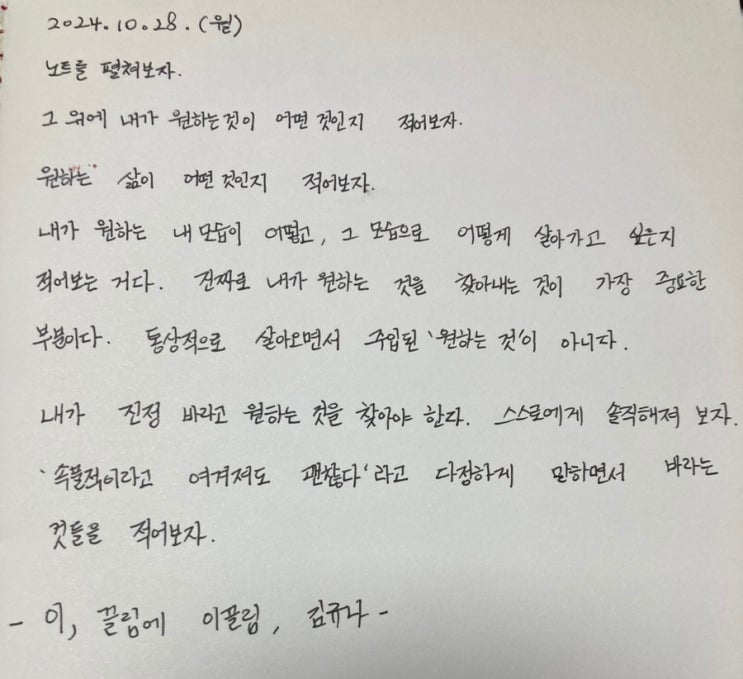 2024.10.28.(월)
노트를 펼쳐보자.
그 위에 내가 원하는것이 어떤 것인지 적어보자.
원하는 삶이 어떤 것인지 적어보자.
내가 원하는 내 모습이 어떻고, 그 모습으로 어떻게 살아가고 싶은지
적어보는 거다. 진짜로 내가 원하는 것을 찾아내는 것이 가장 중요한
부분이다. 통상적으로 살아오면서 주입된 '원하는 것'이 아니다.
내가 진정 바라고 원하는 것을 찾아야 한다. 스스로에게 솔직해져 보자.
'속물적이라고 여겨져도 괜찮다'라고 다정하게 말하면서 바라는
것들을 적어보자.
- 이, 끌림에 이끌림, 김규나 -